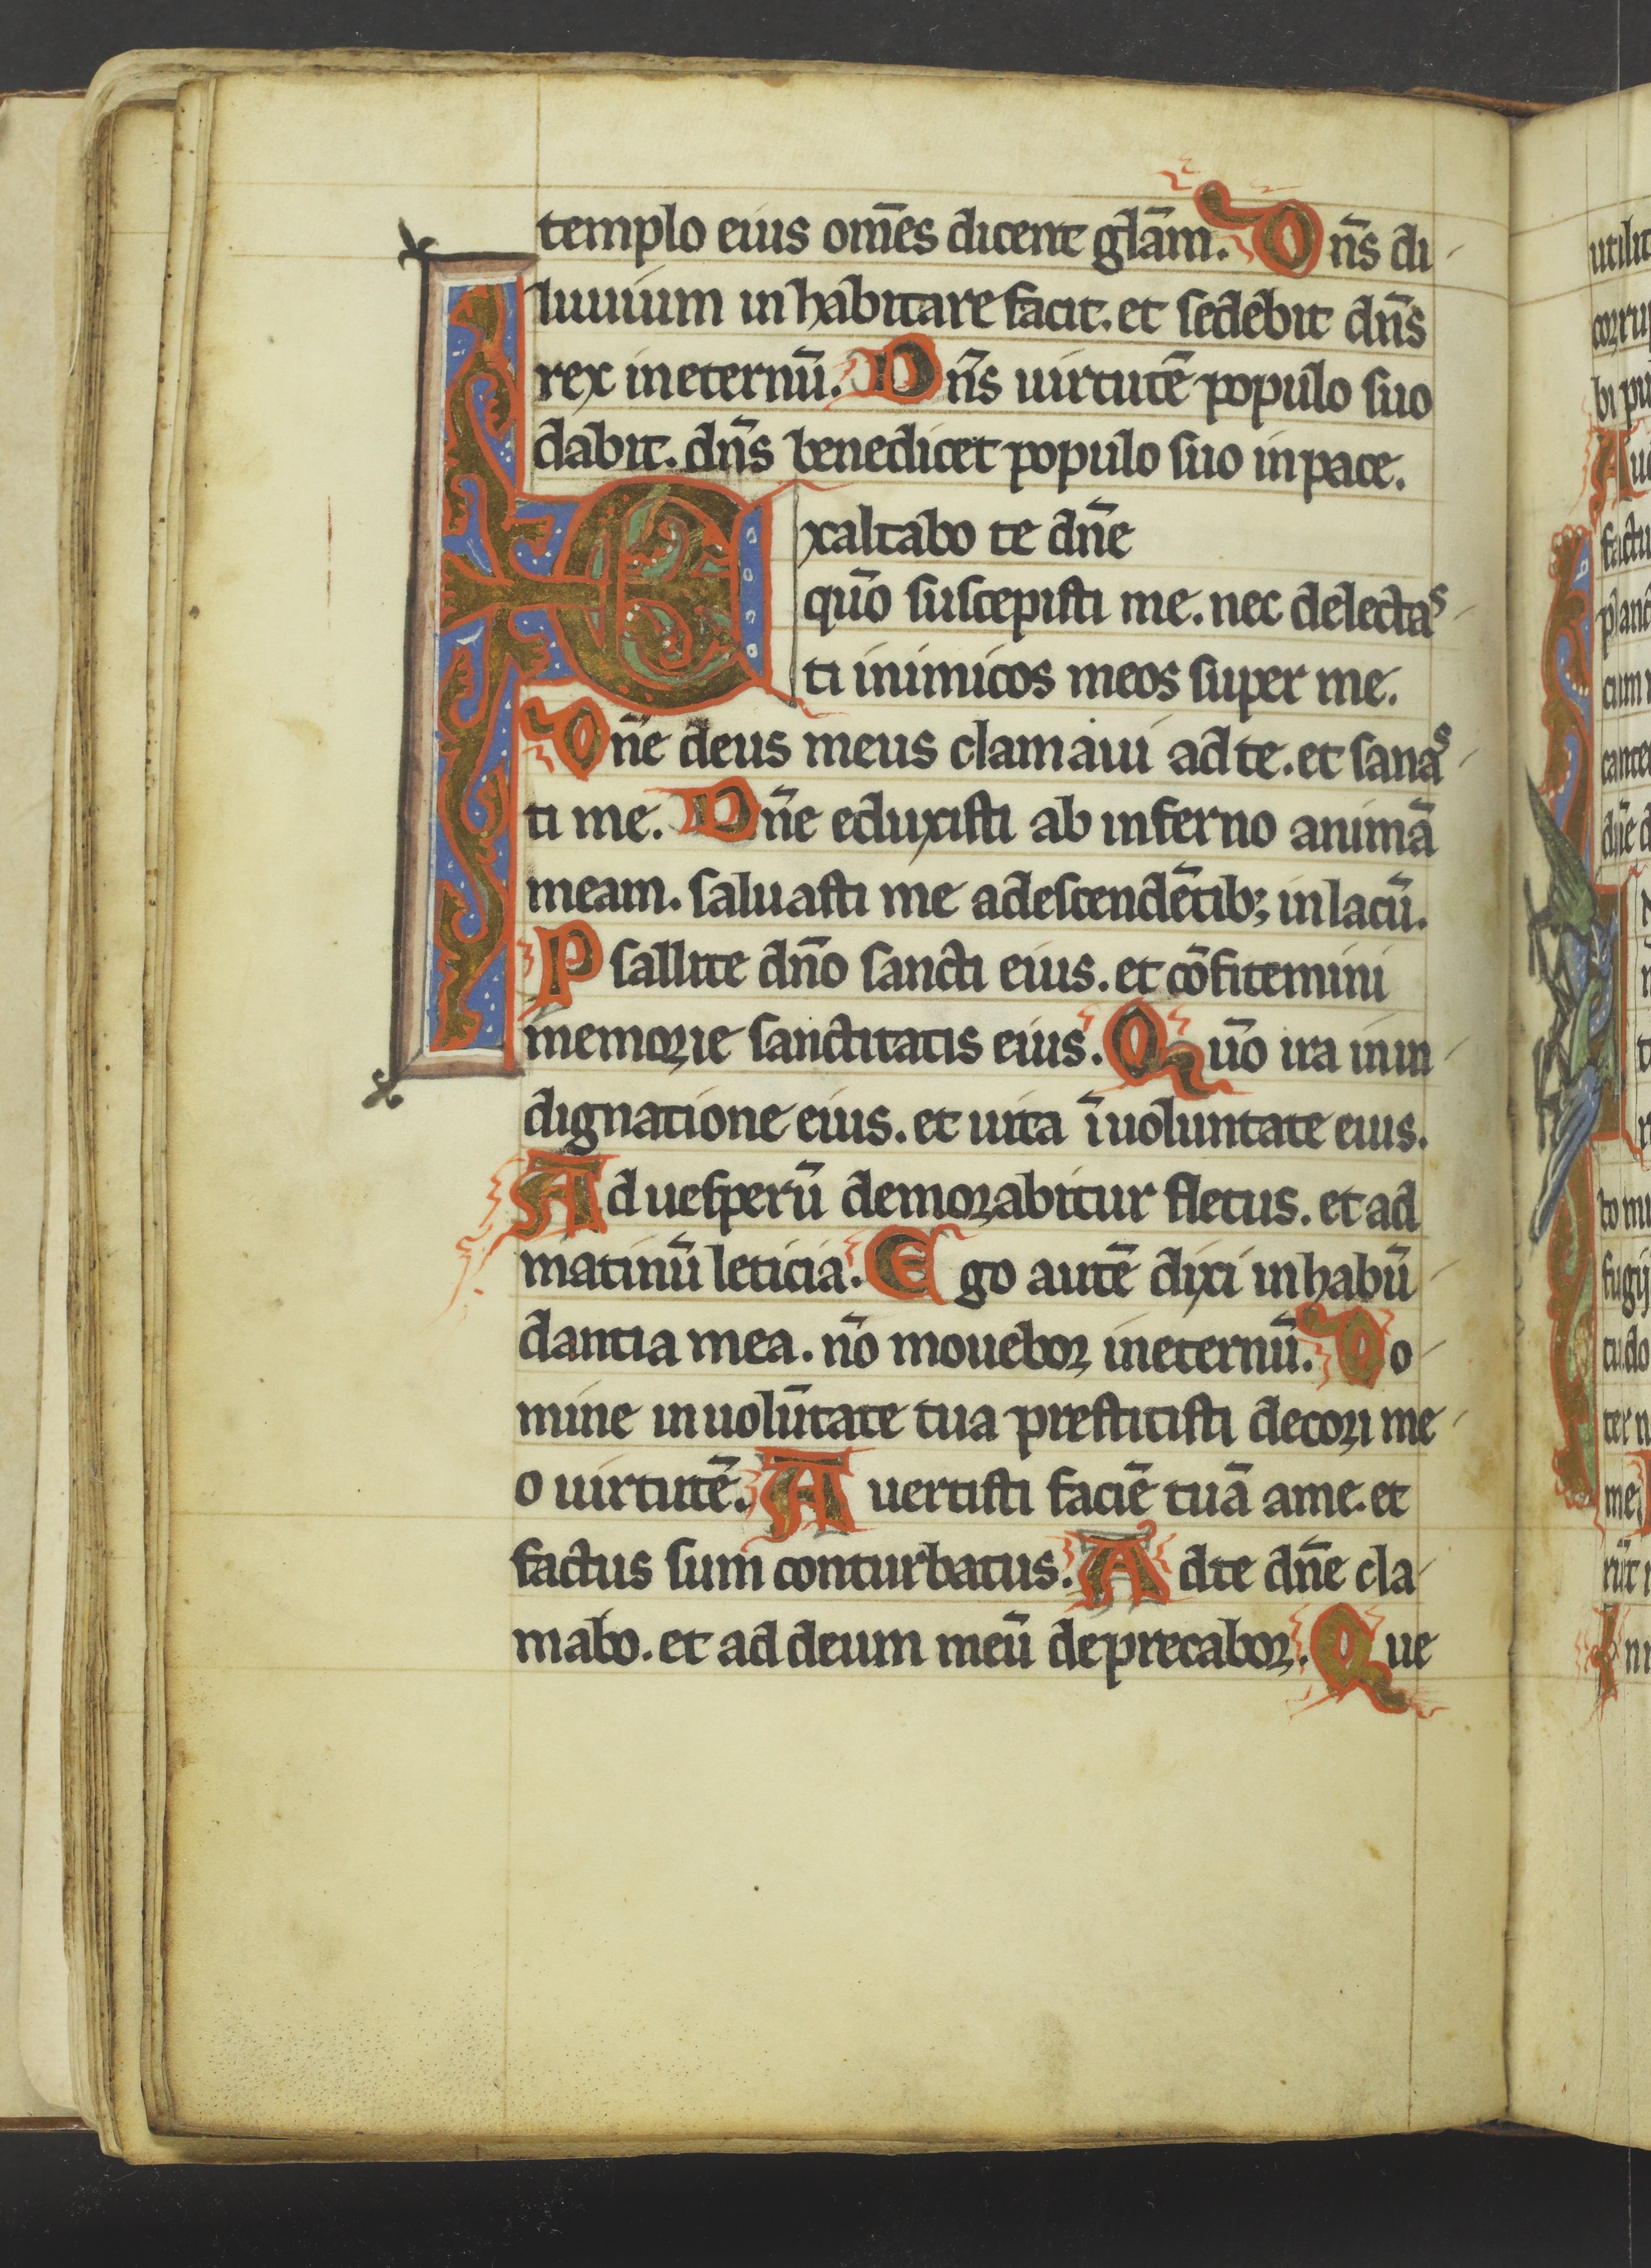 templo eius om̄es dicent glām. Dn̄s di
luuium inhabitare facit. et sedebit dn̄s
rex ineternū. Dn̄s uirtutē populo suo
dabit. dn̄s benedicet populo suo inpace.
Exaltabo te dn̄e
quō suscepisti me. nec delectas
ti inimicos meos super me.
Dn̄e deus meus clamaui adte. et sanas
ti me. Dn̄e eduxisti ab inferno animā
meam. saluasti me adescendētib; inlacū.
Psallite dn̄o sancti eius. et cōfitemini
memorie sanctitatis eius. Quō ira inin
dignatione eius. et uita īuoluntate eius.
Ad uesperū demorabitur fletus. et ad
matinū leticia. Ego autē dixi inhabū
dantia mea. nō mouebor ineternū. Do
mine inuolūtate tua prestitisti decori me
o uirtutē. Auertisti faciē tuā ame. et
factus sum conturbatus. Adte dn̄e cla
mabo. et ad deum meū deprecabor. Que